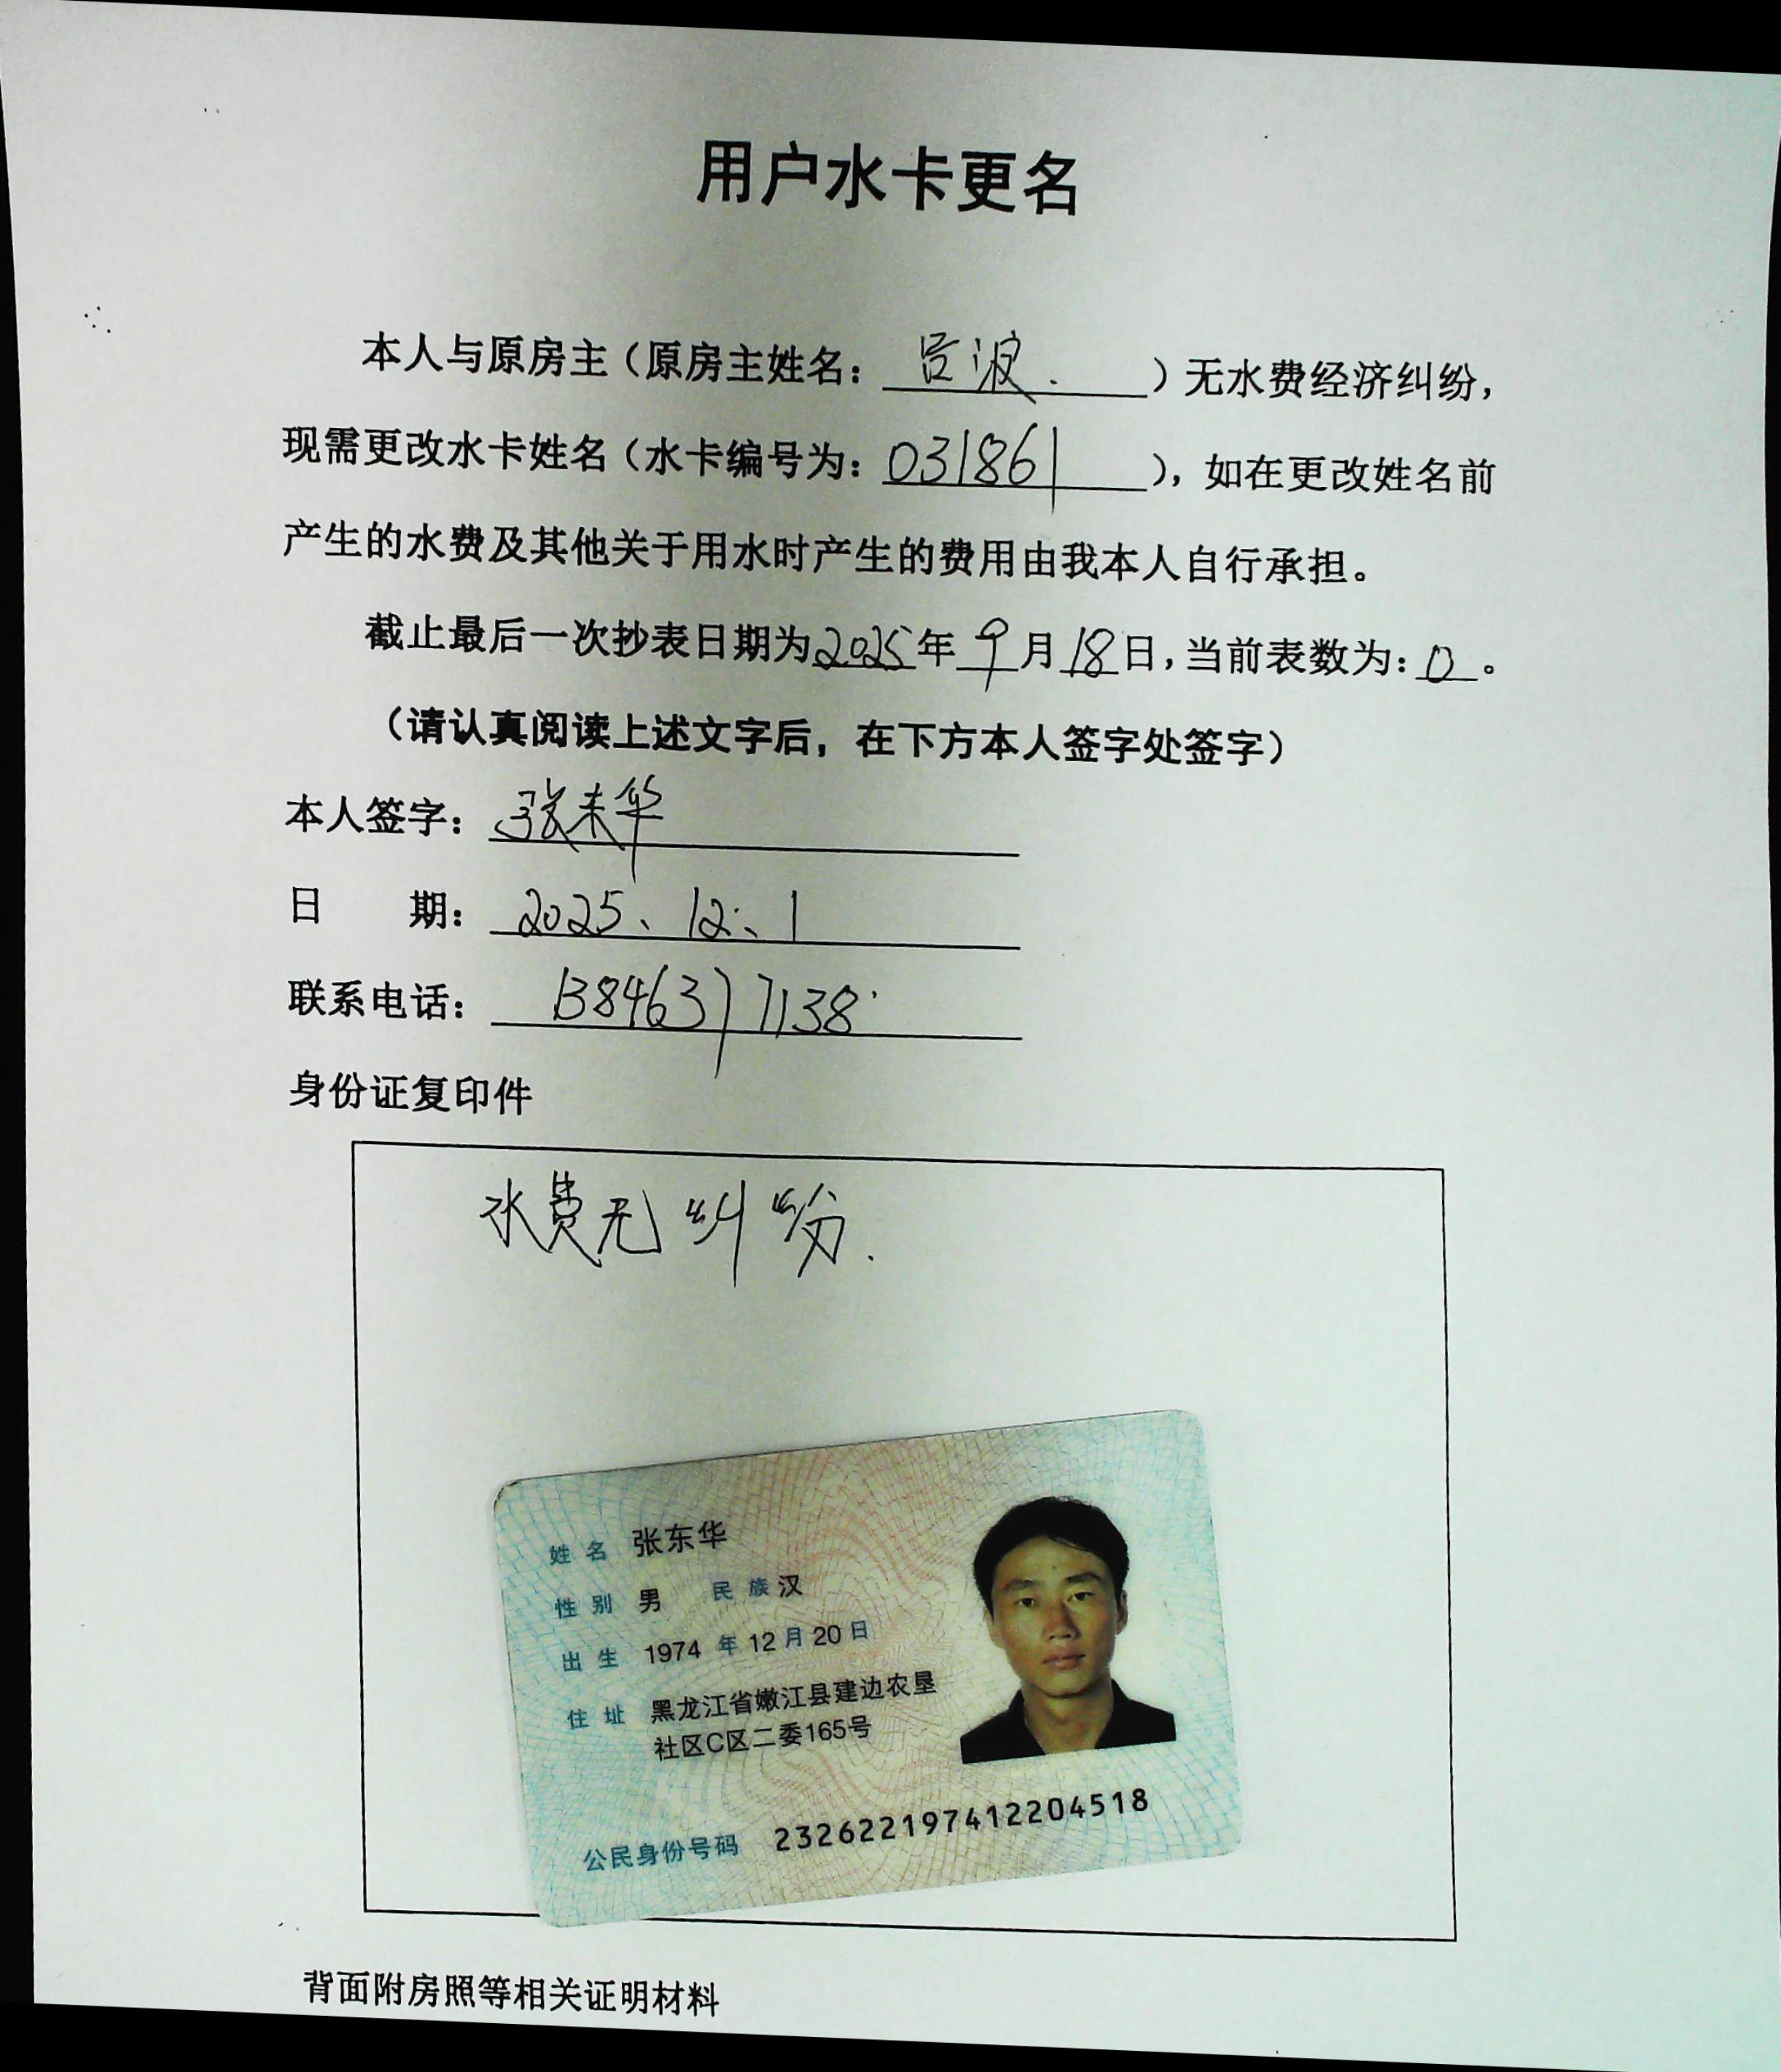 用户水卡更名
本人与原房主（原房主姓名：吕波.）无水费经济纠纷，
现需更改水卡姓名（水卡编号为：031861），如在更改姓名前
产生的水费及其他关于用水时产生的费用由我本人自行承担。
截止最后一次抄表日期为2025年9月18日，当前表数为：0。
（请认真阅读上述文字后，在下方本人签字处签字）
本人签字：张东华
日 期：2025、12、1
联系电话：13846377138
身份证复印件
水费无纠纷.
姓名 张东华
性别 男 民族 汉
出生 1974 年 12 月 20 日
住址 黑龙江省嫩江县建边农垦
社区C区二委165号
公民身份号码 232622197412204518
背面附房照等相关证明材料